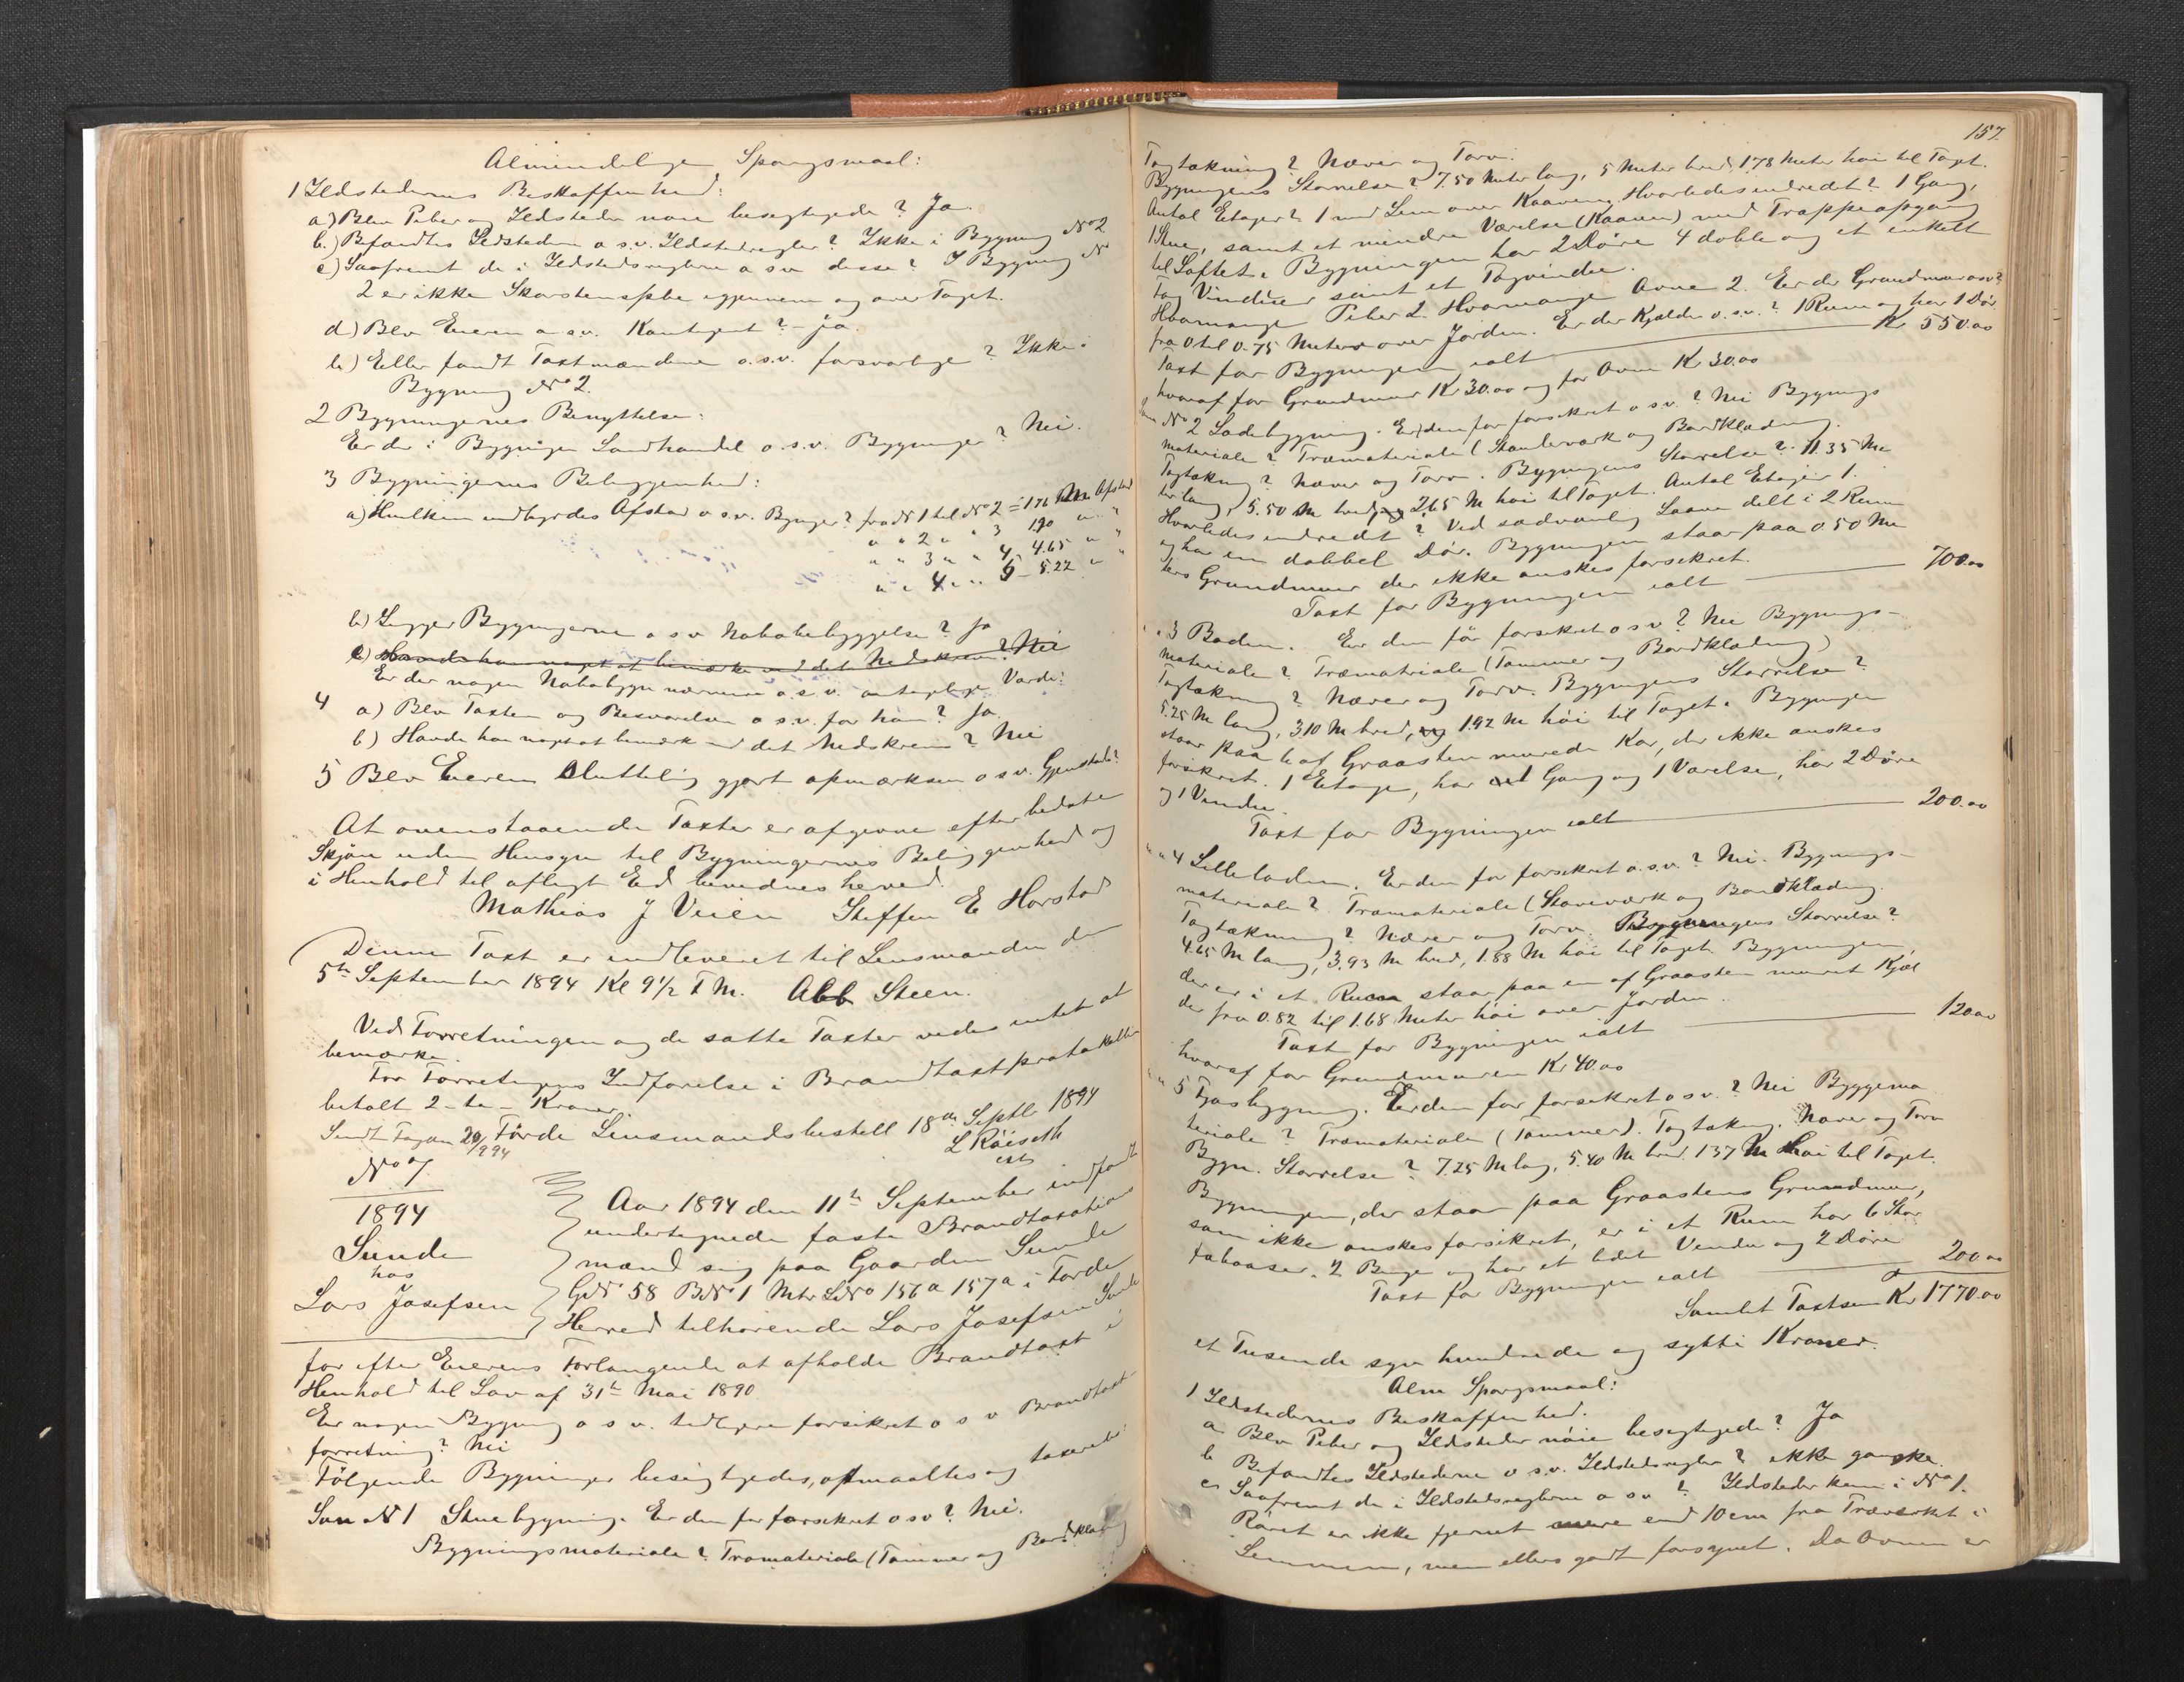 Almindelige Spørgsmaal:
1 Ildstedernes Beskaffenhed:
a) Blev Piber og Ildsteder nøie besigtigede? Ja.
b.) Befandtes Ildstedene o s.v. Ildstedsregler? Ikke i Bygning No 2
c) Saafremt de i Ildstedsreglerne o s v disse? I Bygning No
2 er ikke Skorstenspibe igjennem og over Taget.
d) Blev Eieren o. s.v. Kontigent? - ja.
b) Eller fandt Taxtmændene o. s.v. forsvarlige? Ikke i
Bygning No 2.
2 Bygningernes Benyttelse:
Er der i Bygnigen Landhandel o. s. v. Bygninger? Nei.
3 Bygningernes Beliggenhed:
a) Hvilken indbyrdes Afstand o s.v. Bygnger? fra No 1 til No 2 = 1.76 Afstand
" " 2 " " 3 190 " "
" " 3 " " 4 4.65 " "
" " 4 " " 5 - 5.22 " "
b) Ligger Bygningerne o s v Nabobebyggelse? Ja
c) Havde han noget at bemærke ved det Nedskrevne? Nei
Er der nogen Nabobygn nærmere o. s.v. antagelige Værdi:
4 a) Blev Taxten og Besvarelsen o s.v. for ham? Ja.
b) Havde han noget at bemærk ved det Nedskrevne? Nei
5 Blev Eieren Sluttelig gjort opmærksom o s v. Gjenstande?
At ovenstaaende Taxter er afgivne efter bedste
Skjøn uden Hensyn til Bygningernes Beliggenhed og
i Henhold til aflagt Ed bevidnes herved.
Mathias J Veien Steffen E Horstad
Denne Taxt er indleveret til Lensmanden den
5te September 1894 Kl 9½ F M. Abb Steen.
Ved Forretningen og de satte Taxter vides intet at
bemærke.
For Forretnigens Indførelse i Brandtaxtprotokollen
betalt 2 - to - Kroner.
Sendt Fogden 20/9 94 Førde Lensmandsbestill 18de Septb 1894
L Röiseth
No 7
1894
Sunde
hos
Lars Josefsen
Aar 1894 den 11te September indfandt
undertegnede faste Brandtaxations
mænd sig paa Gaarden Sunde
GNo 58 BNo 1 Mtr LNo 156a 157a i Førde
Herred tilhørende Lars Josefsen Sunde
for efter Eierens Forlangende at afholde Brandtaxt i
Henhold til Lov af 31te Mai 1890
Er nogen Bygning o s v. tidligere forsikret o s v Brandtaxt-
forretning? Nei
Følgende Bygninger besigtigedes, opmaaltes og taxeredes:
Som No 1 Stuebygning. Er den før forsikret o s v? Nei.
Bygningsmateriale? Træmateriale (Tømmer og Bordklædng
157.
Tagtækning? Næver og Torv.
Bygningens Størrelse? 7.50 Meter lang, 5 Meter bred, 1.78 Meter høi til Taget.
Antal Etager? 1 med Lem over Kaaven. Hvorledes indredt? 1 Gang,
1 Stue, samt et mindre Værelse (Kaaven) med Trappeopgang
til Loftet. Bygningen har 2 Døre 4 doble og et enkelt
fag Vinduer samt et Tagvindue.
Hvormange Piber 2. Hvormange Ovne 2. Er der Grundmur o s v?
fra 0 til 0.75 Meter over Jorden. Er der Kjælder o. s.v.? 1 Rum og har 1 Dør
Taxt for Bygningen ialt Kr 550.00
hvoraf for Grundmur Kr 30.00 og for Ovne Kr 30.00
Som No 2 Ladebygning. Er den før forsikret o s.v.? Nei Bygnings
materiale? Træmateriale (Stavleværk og Bordklædning.
Tagtækng? Næver og Torv. Bygnigens Størrelse? 11.35 Me
ter lang, 5.50 M bred, og 2.65 M høi til Taget. Antal Etager 1.
Hvorledes indredt? Ved sædvanlig Laave delt i 2 Rum
og har en dobbel Dør. Bygningen staar paa 0.50 Me
ters Grundmur der ikke ønskes forsikret.
Taxt for Bygningen ialt 700.00
" 3 Boden. Er den før forsikret o s v? Nei Bygnings-
materiale? Træmateriale (Tømmer og Bordklædning)
Tagtækng? Næver og Torv. Bygningens Størrelse?
5.25 M lang, 3.10 M bred, og 1.92 M høi til Taget. Bygningen
staar paa 6 af Graasten murede Kar, der ikke ønskes
forsikret. 1 Etage, har 1 Gang og 1 Værelse, har 2 Døre
og 1 Vindu.
Taxt for Bygningen ialt 200.00
" " 4 Lilleladen. Er den før forsikret o. s.v.? Nei. Bygnings-
materiale? Træmateriale (Staveværk og Bordklædng.
Tagtækning? Næver og Torv. Bygningens Størrelse?
4.65 M lang, 3.93 M bred, 1.88 M høi til Taget. Bygningen,
der er i et Rum staar paa en af Graasten muret Kjæl
der fra 0.82 til 1.68 Meter høi over Jorden.
Taxt for Bygningen ialt 120.00
hvoraf for Grundmuren Kr 40.00
" " 5 Fjøsbygning. Er den før forsikret o s v.? Nei Byggema
teriale? Træmateriale (Tømmer). Tagtækng. Næver og Torv
Bygn. Størrelse? 7.25 M lang, 5.40 M bred 1.37 M Høi til Taget.
Bygningen, der staar paa Graastens Grundmur,
som ikke ønskes forsikret, er i et Rum har 6 Stor
febaaser, 2 Binge og har et lidet Vindu og 2 Døre
Taxt for Bygningen ialt 200.00
Samlet Taxtsum Kr 1770.00
et Tusende syv hundrede og sytti Kroner.
Alm Spørgsmaal:
1 Ildstedernes Beskaffenhed.
a Blev Piber og Ildsteder nøie besigtigede? Ja
b Befandtes Ildstederne o s.v. Ildstedsregler? ikke ganske.
c Saafremt de i Ildstedsreglerne o s v? Ildsteder kun i No 1.
Røret er ikke fjernet mere end 10 cm fra Træverket i
Lemmen, men ellers godt forsynet. Da Ovnen er